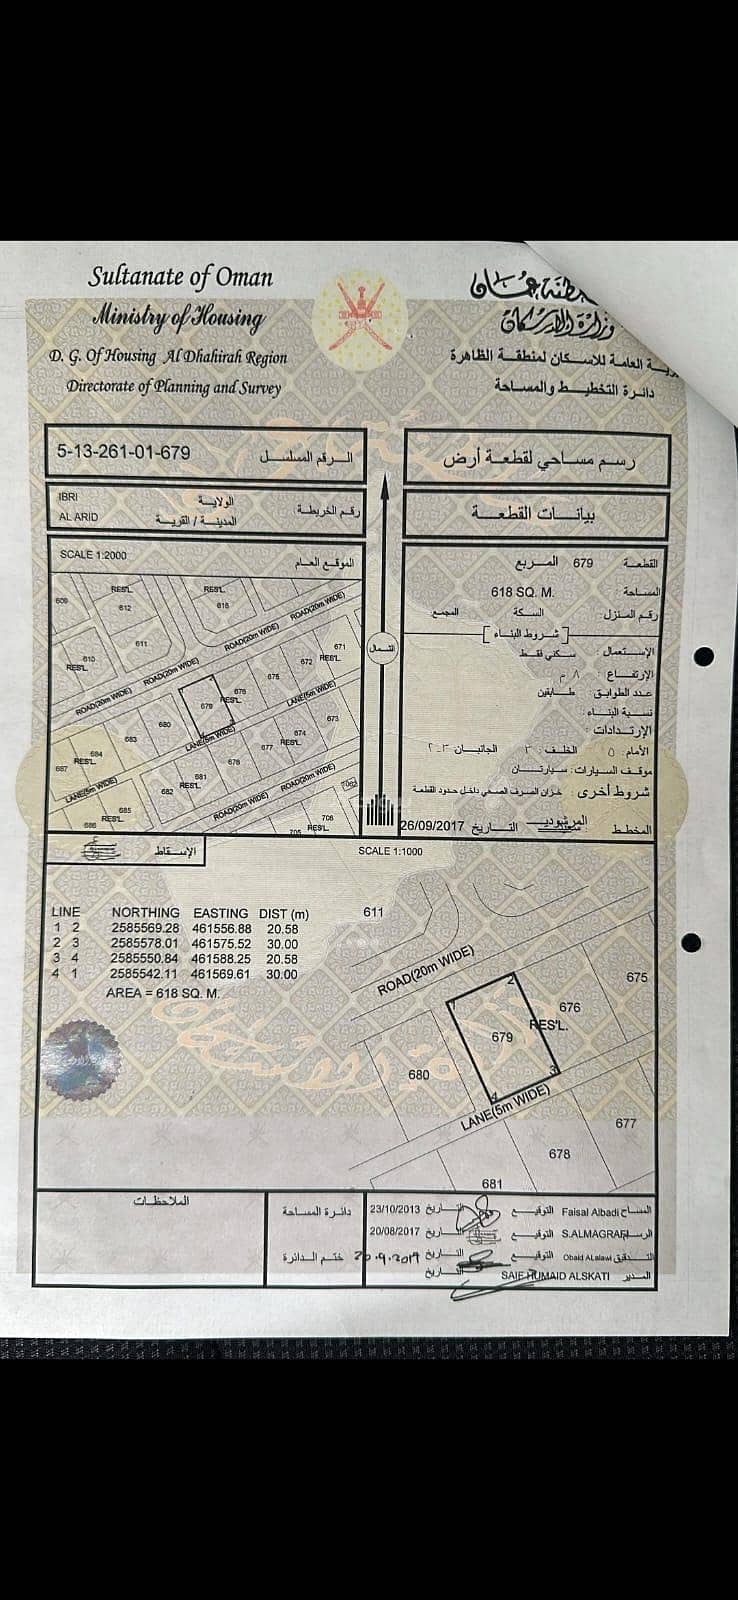 Sultanate of Oman
Ministry of Housing
D. G. Of Housing Al Dhahirah Region
Directorate of Planning and Survey
وزارة الإسكان
العامة للاسكان لمنطقة الظاهرة
دائرة التخطيط والمساحة
5-13-261-01-679 الرقم المسلسل
رسم مساحي لقطعة أرض
IBRI الولاية
AL ARID المدينة / القرية
رقم الخريطة
بيانات القطعة
SCALE 1:2000 الموقع العام
القطعة 679 المربع
المساحة 618 SQ. M.
رقم المنزل السكة المجمع
شروط البناء
الإستعمال: سكني فقط
الإرتفاع: ٨ م
عدد الطوابق: طابقين
نسبة البناء:
الإرتدادات:
الأمام: ٥ الخلف: ٣ الجانبان ٣-٢
موقف السيارات: سيارتان
شروط أخرى: خزان الصرف الصحي داخل حدود القطعة
المخطط التاريخ 26/09/2017
الشمال
609
RES'L.
612
RES'L.
616
611
610
RES'L.
ROAD(20m WIDE)
ROAD(20m WIDE)
ROAD(20m WIDE)
ROAD(20m WIDE)
671
672 RES'L.
675
676
RES'L.
679
680
683
684
RES'L.
687
LANE(5m WIDE)
LANE(5m WIDE)
LANE(5m WIDE)
673
674
RES'L.
677
678
681
682 RES'L.
685
RES'L.
686
ROAD(20m WIDE)
ROAD(20m WIDE)
706
705 RES'L.
الإسقاط
SCALE 1:1000
LINE NORTHING EASTING DIST (m)
1 2 2585569.28 461556.88 20.58
2 3 2585578.01 461575.52 30.00
3 4 2585550.84 461588.25 20.58
4 1 2585542.11 461569.61 30.00
AREA = 618 SQ. M.
611
ROAD(20m WIDE)
675
676
RES'L.
679
1
2
3
4
680
LANE(5m WIDE)
677
678
681
الملاحظات
دائرة المساحة
ختم الدائرة
المساح Faisal Albadi التوقيع التاريخ 23/10/2013
S.ALMAGRAFI التوقيع التاريخ 20/08/2017
التدقيق Obaid ALalawi التوقيع التاريخ
المدير SAIF HUMAID ALSKATI التاريخ